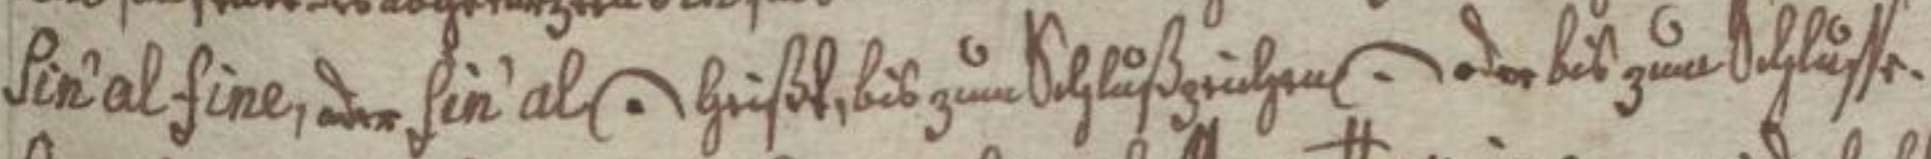 Sin' al fine, oder sin' al 𝄐 heißt, bis zum Schlußzeichen 𝄐 oder bis zum Schlusse.